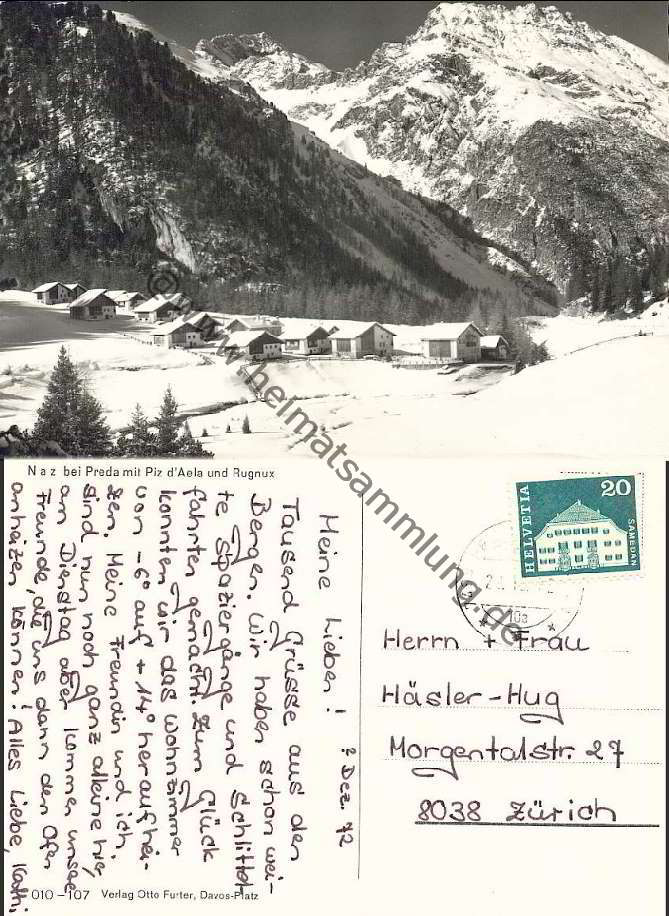 Naz bei Preda mit Piz d'Aela und Rugnux
Meine Lieben! 2 Dez. 72
Tausend Grüsse aus den
Bergen. Wir haben schon wei-
te Spaziergänge und Schlittel-
fahrten gemacht. Zum Glück
konnten wir das Wohnzimmer
von -6° auf + 14° heraufhei-
zen. Meine Freundin und ich
sind nun noch ganz alleine hier,
am Dienstag aber kommen unsere
Freunde, die uns dann den Ofen
anheizen können! Alles Liebe, Kathi
010-107 Verlag Otto Furter, Davos-Platz
HELVETIA
20
SAMEDAN
Herrn + Frau
Häsler-Hug
Morgentalstr. 27
8038 Zürich
© www.heimatsammlung.de